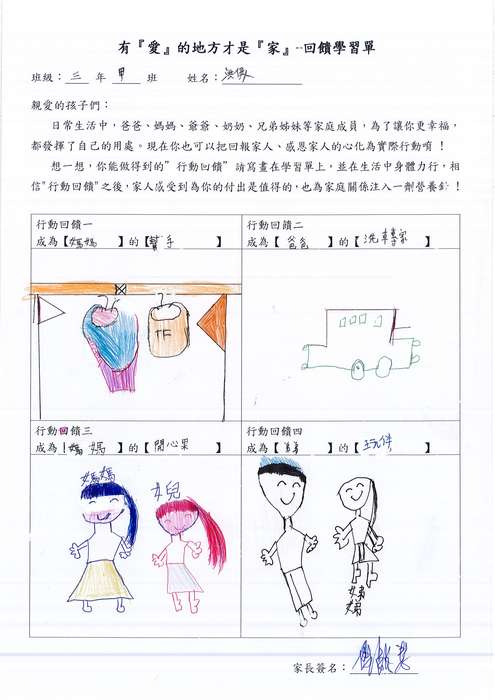 有『愛』的地方才是『家』--回饋學習單
班級：三 年 甲 班 姓名：
親愛的孩子們：
日常生活中，爸爸、媽媽、爺爺、奶奶、兄弟姊妹等家庭成員，為了讓你更幸福，
都發揮了自己的用處。現在你也可以把回報家人、感恩家人的心化為實際行動唷！
想一想，你能做得到的”行動回饋”請寫畫在學習單上，並在生活中身體力行，相
信"行動回饋"之後，家人感受到為你的付出是值得的，也為家庭關係注入一劑營養針！
行動回饋一
成為【媽媽】的【幫手】
行動回饋二
成為【爸爸】的【洗車專家】
TF
行動回饋三
成為【媽媽】的【開心果】
行動回饋四
成為【弟弟】的【玩伴】
媽媽
女兒
家長簽名：